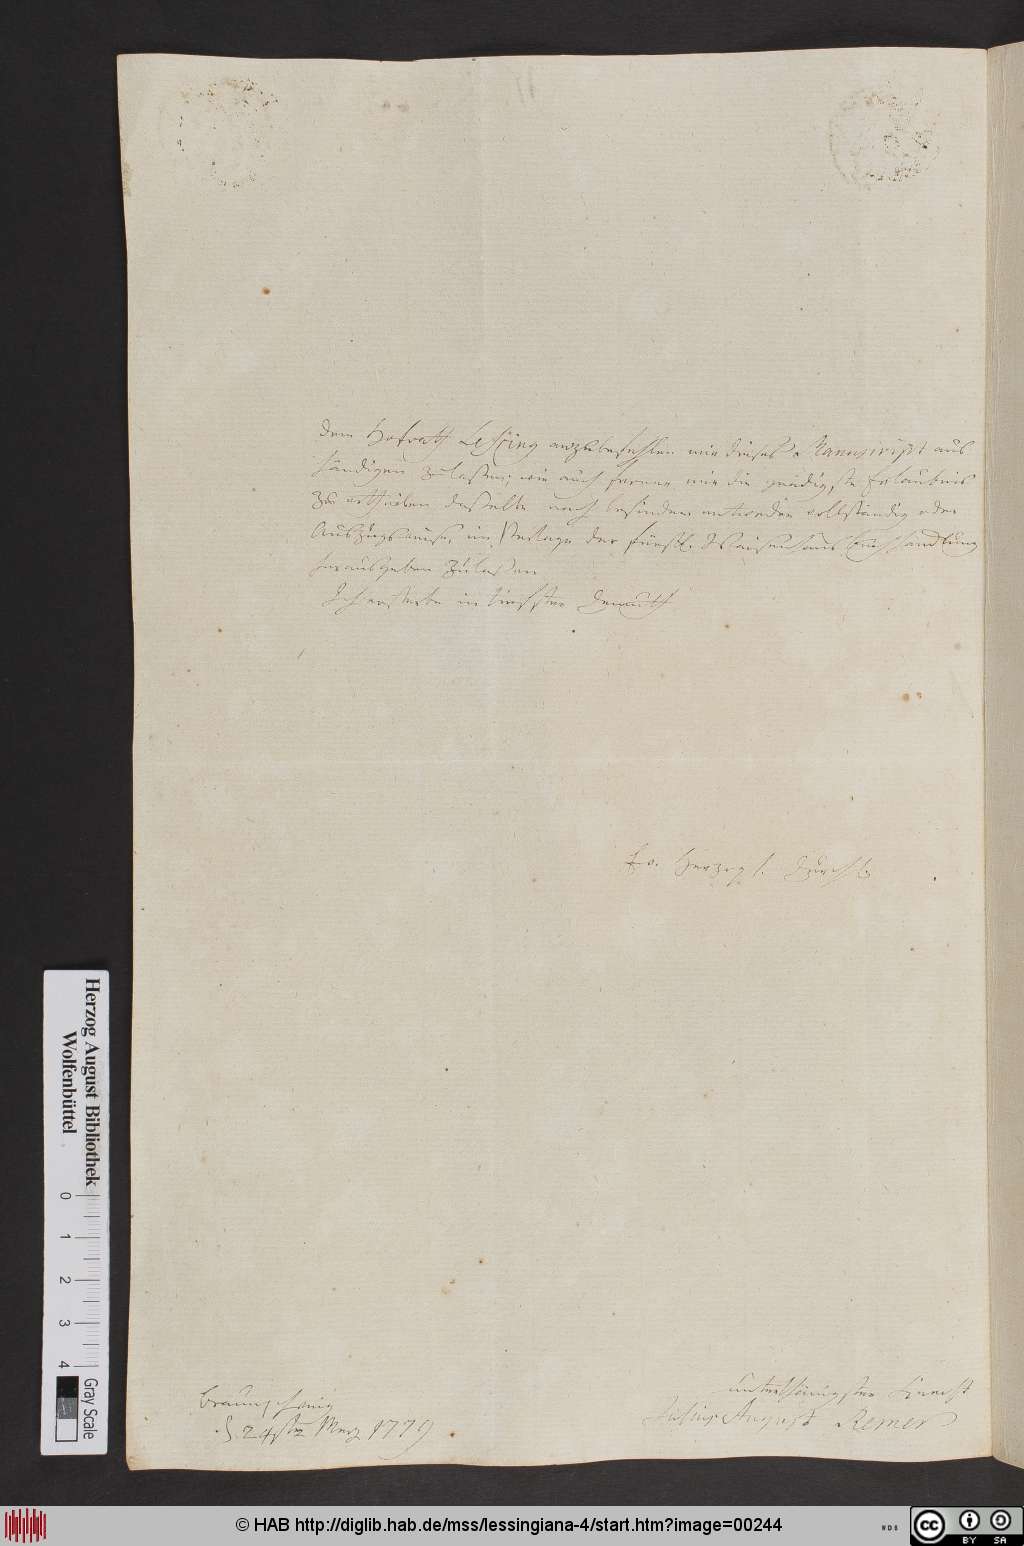 dem Hofrath Lessing anzubefehlen mir dieses Manuscript aus
händigen zulassen; wie auch ferner mir die gnädigste Erlaubnis
zu ertheilen dasselbe nach befinden entweder vollständig oder
Auszugsweise, im Verlage der fürstl. Waisenhaus Buchhandlung
herausgeben zulassen
Ich ersterbe in tiefster Demuth
Ew. Herzogl. Durchl
unterthänigster Knecht
Julius August Remer
Braunschweig
d. 24sten Merz 1779
Herzog August Bibliothek
Wolfenbüttel
0 1 2 3 4
Gray Scale
© HAB http://diglib.hab.de/mss/lessingiana-4/start.htm?image=00244
WDB
CC BY SA